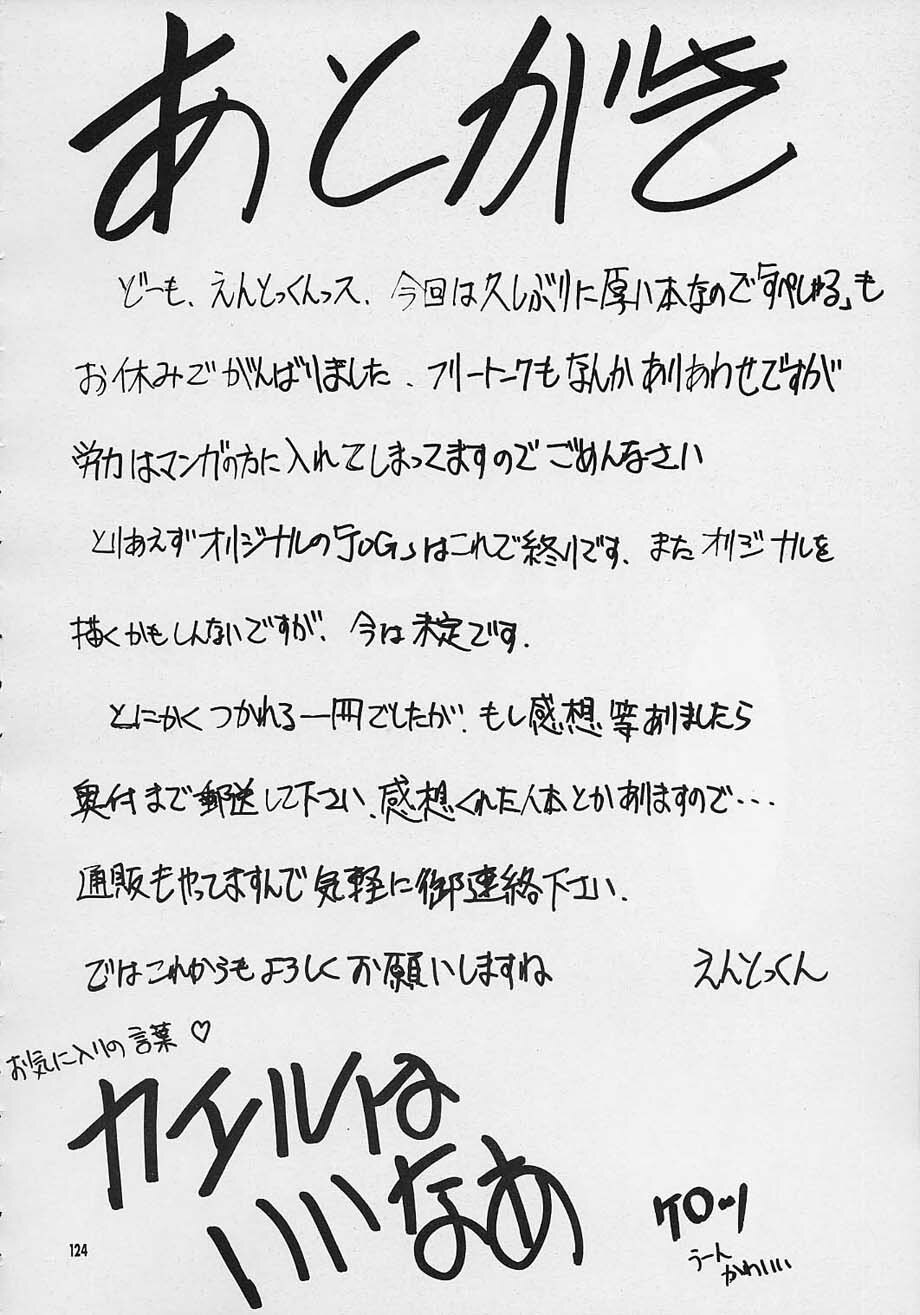 あとがき
どーも、えんとっくんっス、今回は久しぶりに厚い本なので「すぺしゃる」も
お休みでがんばりました、フリートークもなんかありあわせですが
労力はマンガの方に入れてしまってますのでごめんなさい
とりあえずオリジナルの「JOG」はこれで終りです、またオリジナルを
描くかもしんないですが、今は未定です、
とにかくつかれる一冊でしたが、もし感想等ありましたら
奥付まで郵送して下さい、感想くれた人本とかありますので・・・
通販もやってますんで気軽に御連絡下さい、
ではこれからもよろしくお願いしますね えんとっくん
お気に入りの言葉♡
カイルは
いいなあ
ケロッ
うーん
かわいい
124